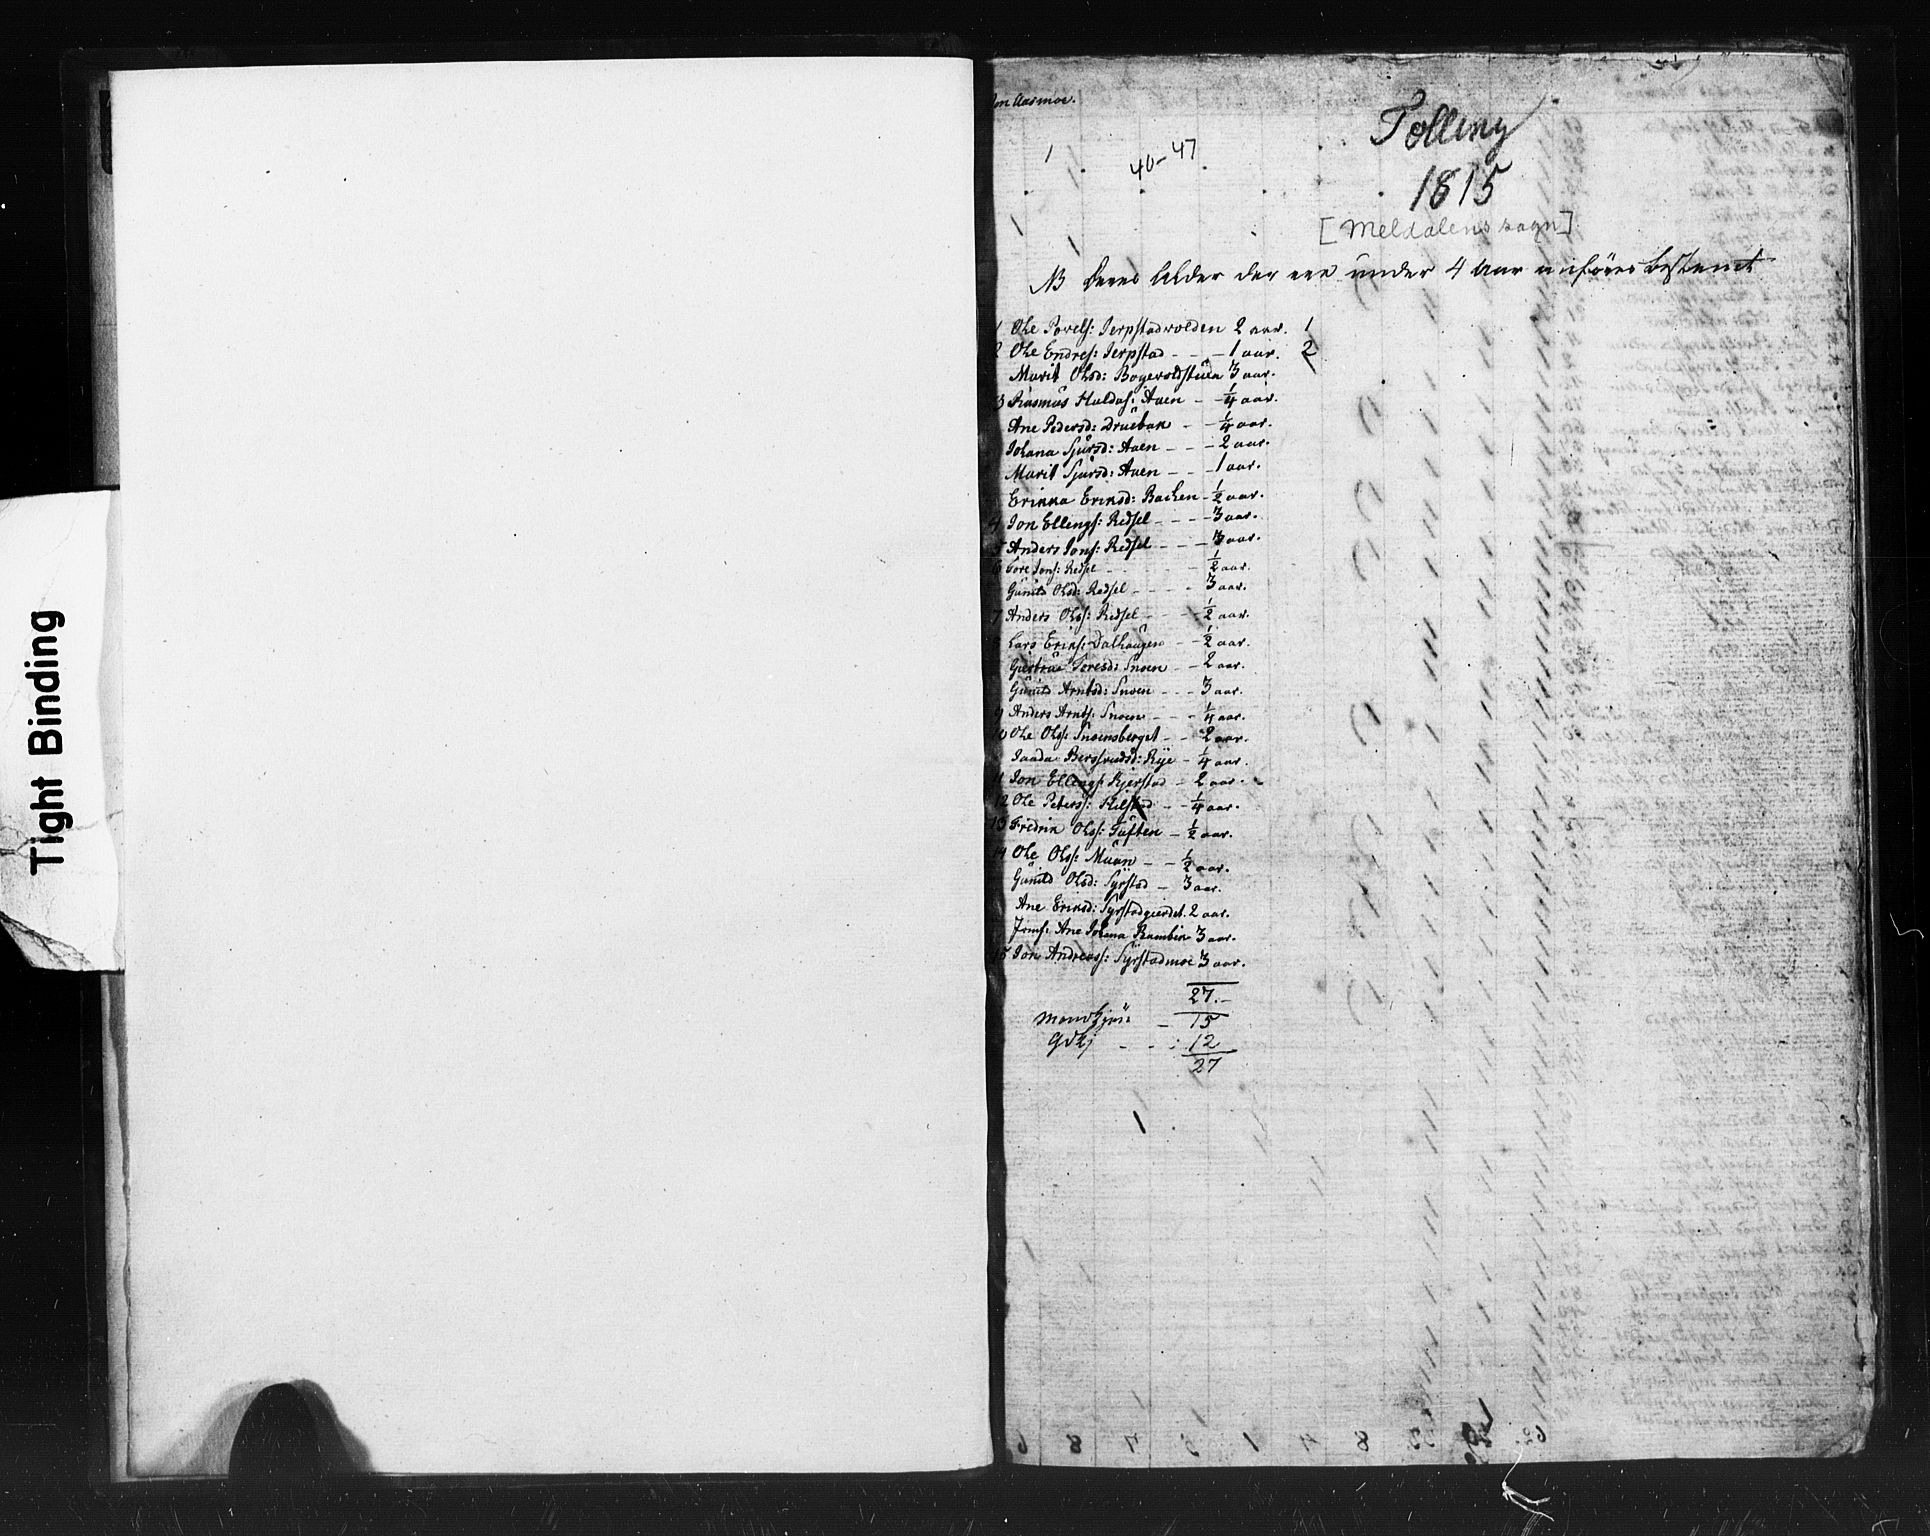 Tight Binding
Jon Aasmoe.
Tolling
1
40-47
1815
[Meldalens sogn]
NB Deres Alder der ere under 4 Aar anføres bestemt
1 Ole Povels: Jerpstadvolden 2 aar. 1
2 Ole Endres: Jerpstad - - - 1 aar. 2
Marit Olsd: Bogevoldstuen 3 aar.
3 Rasmus Haldos: Aaen - - ¼ aar.
Ane Pedersd: Druebak - - ¼ aar.
Johana Sjursd: Aaen - - - 2 aar.
Marit Sjursd: Aaen - - - 1 aar.
Erikka Eriksd: Bachen - ½ aar.
4 Jon Ellengs: Redsel - - - - 3 aar.
5 Anders Jons: Redsel - - - 3 aar.
6 Tore Jons: Redsel - - - ½ aar.
Gunild Olsd: Redsel - - - - 3 aar.
7 Anders Ols: Redsel - - - - ½ aar.
8 Lars Eriks: Dalhaugen - - ½ aar.
Giertrue Toresd: Snoen - - 2 aar.
Gunild Arntsd: Snoen - - - 3 aar.
9 Anders Arnts: Snoen - - - ¼ aar.
10 Ole Ols: Snoensberget - - 2 aar.
Bersvendsd: Rye - ¼ aar.
11 Jon Ellengs: Kjerstad - 2 aar.
12 Ole Peters: Kilstad - - ¼ aar.
13 Fredrik Ols: Tuften - ½ aar.
14 Ole Ols: Muan - - ½ aar.
Gunild Olsd: Syrstad - 3 aar.
Ane Eriksd: Syrstadgierdet. 2 aar.
Jomf: Ane Johana Rambek 3 aar.
15 Jon Andreass: Syrstadmoe 3 aar.
27.-
Mandkjøn: - 15
Qvkj - - : 12
27